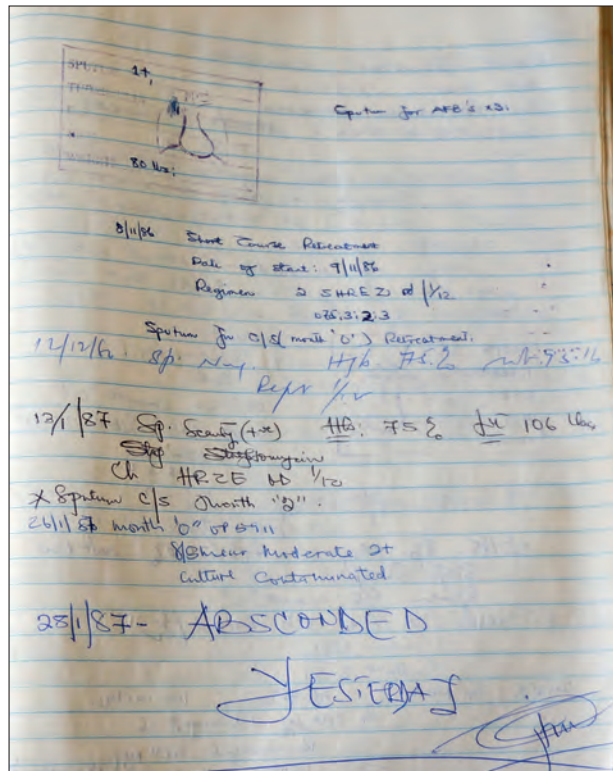 1+,
Sputum for AFB's x3:
80 lbs:
8/11/86 Short Course Retreatment
Date of start: 9/11/86
Regimen 2 SHREZ od 1/12
Sputum for C/S (month '0') Retreatment.
12/12/86. Sp. Neg. Hgb. 75.%
Repr 1/12
13/1/87 Sp. Scanty (+ve) HB: 75% 106 lbs
Streptomycin
Ch HRZE OD 1/12
* Sputum C/S month "2".
26/1/86 month "0"
Smear moderate 2+
Culture Contaminated
28/1/87- ABSCONDED
YESTERDAY